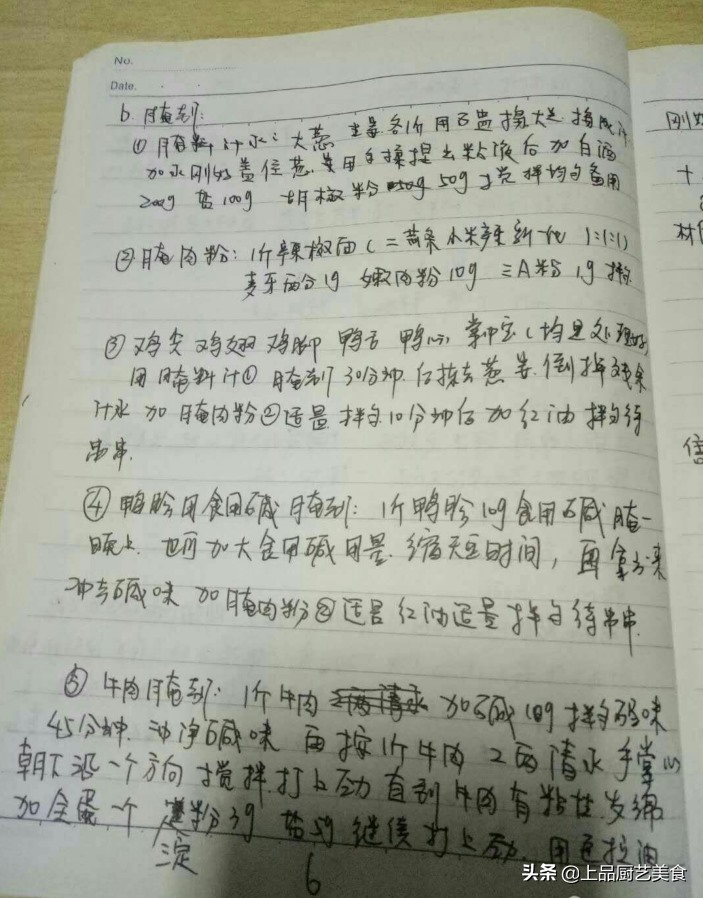 No.
Date.
b. 腌制:
① 腌料汁水: 大葱 生姜各1斤 用 大 汁
加水刚好盖住葱 姜用手揉捏出粘液后加白酒
200g 盐100g 胡椒粉 50g 搅拌均匀备用
② 腌肉粉: 1斤辣椒面 (二荆条 小米辣 新一代 1:1:1)
麦芽酚1g 嫩肉粉10g 三A粉 1g 拌匀
③ 鸡尖 鸡翅 鸡脚 鸭舌 鸭心 掌中宝 (均是处理好)
用腌料汁① 腌制30分钟. 后拣去葱姜. 倒掉残余
汁水 加腌肉粉②适量 拌匀10分钟后 加红油 拌匀待
串串.
④ 鸭胗用食用碱腌制: 1斤鸭胗 10g食用碱 腌一
晚上. 也可加大食用碱用量. 缩短时间, 再拿出来
冲去碱味 加腌肉粉②适量 红油适量 拌匀待串串.
⑤ 牛肉腌制: 1斤牛肉 加碱10g 拌匀码味
45分钟. 冲净碱味 再按1斤牛肉 2两清水 手掌心
朝下沿一个方向搅拌.打上劲 直到牛肉有粘性.发绵
加全蛋一个 粉3g 盐5g 继续打上劲. 用色拉油
淀
6
刚好
十
材
信
头条 @上品厨艺美食